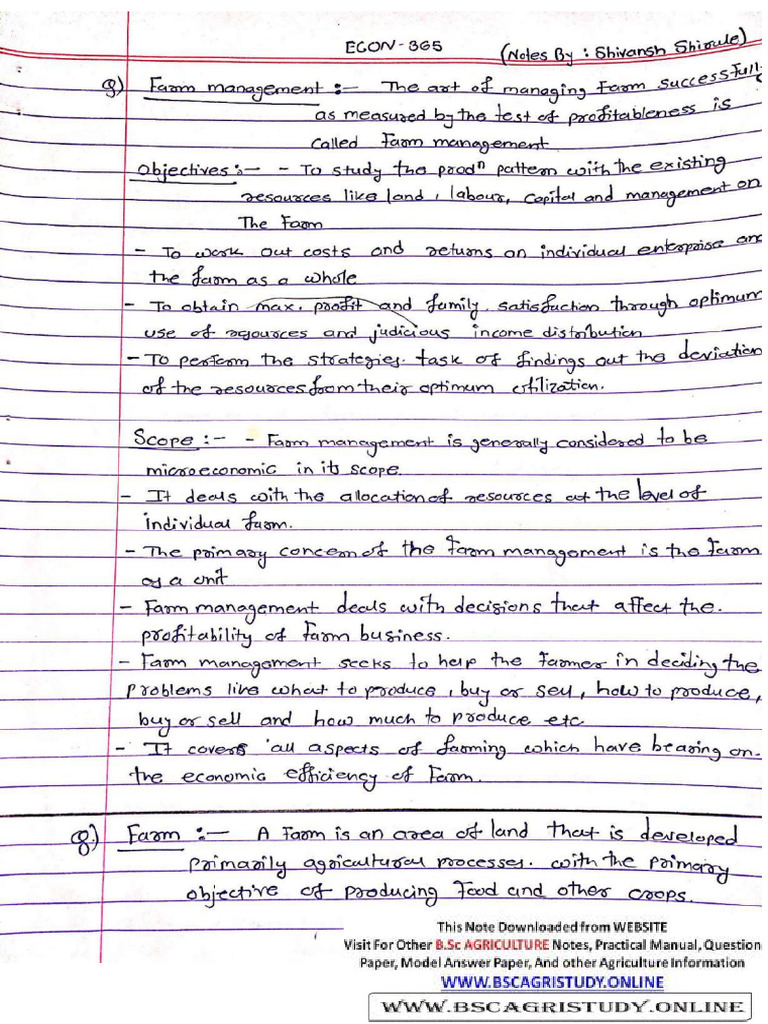 ECON-365
(Notes By : Shivansh Shirule)
Q) Farm management :- The art of managing Farm successfull
as measured by the test of profitableness is
called Farm management
Objectives :- - To study the prodⁿ pattern with the existing
resources like land, labour, capital and management on
The Farm
- To work out costs and returns on individual enterprise and
the farm as a whole
- To obtain max. profit and family satisfaction through optimum
use of resources and judicious income distribution
- To perform the strategies task of findings out the deviation
of the resources from their optimum utilization.
Scope :- - Farm management is generally considered to be
microeconomic in its scope.
- It deals with the allocation of resources at the level of
individual farm.
- The primary concern of the Farm management is the Farm
as a unit
- Farm management deals with decisions that affect the.
profitability of Farm business.
- Farm management seeks to help the Farmer in deciding the
problems like what to produce, buy or sell, how to produce,
buy or sell and how much to produce etc
- It covers all aspects of farming which have bearing on.
the economic efficiency of Farm.
Q.) Farm :- A Farm is an area of land that is developed
primarily agricultural processes. with the primary
objective of producing Food and other crops.
This Note Downloaded from WEBSITE
Visit For Other B.Sc AGRICULTURE Notes, Practical Manual, Question
Paper, Model Answer Paper, And other Agriculture Information
WWW.BSCAGRISTUDY.ONLINE
WWW.BSCAGRISTUDY.ONLINE